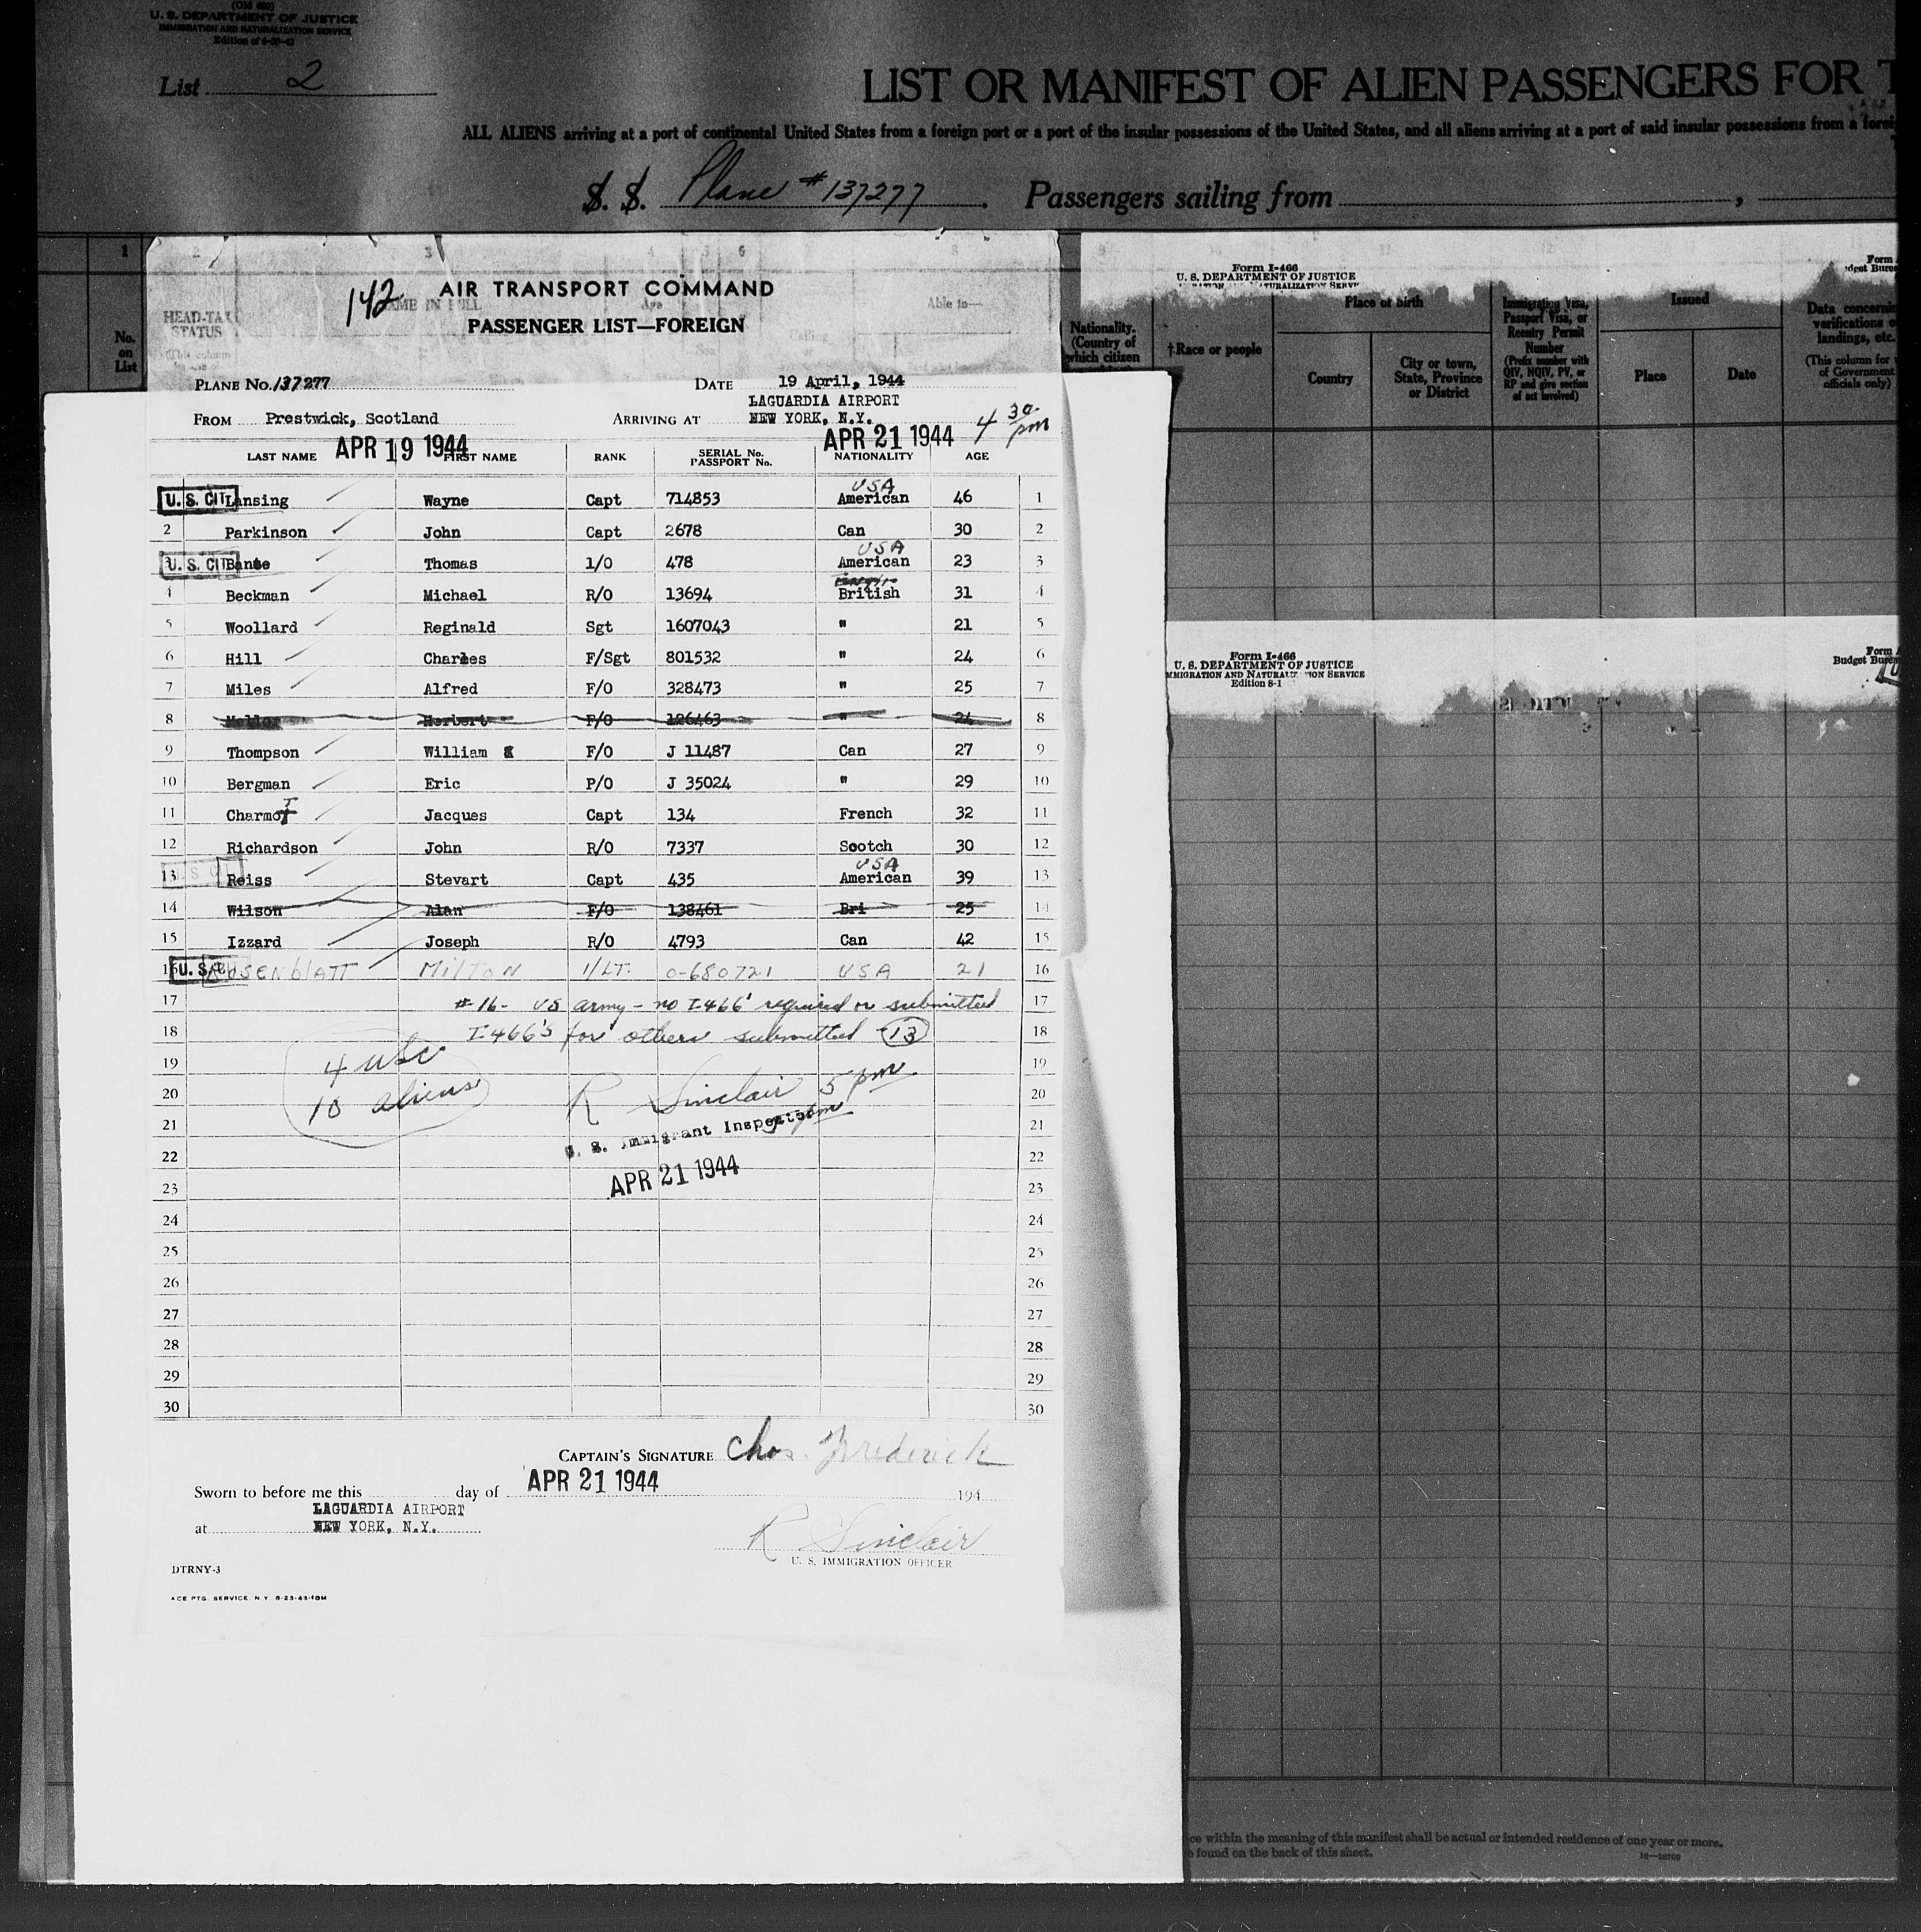 (Old 630)
U. S. DEPARTMENT OF JUSTICE
IMMIGRATION AND NATURALIZATION SERVICE
List 2
LIST OR MANIFEST OF ALIEN PASSENGERS FOR T
ALL ALIENS arriving at a port of continental United States from a foreign port or a port of the insular possessions of the United States, and all aliens arriving at a port of said insular possessions from a forei
S. S. Plane #137277. Passengers sailing from ,
1 2 3 4 5 6 8 9 10 11 12 13
142
AIR TRANSPORT COMMAND
PASSENGER LIST—FOREIGN
NAME IN FULL Age Able to—
HEAD-TAX STATUS
(This column
Sex
No. on List
PLANE No. 137277 DATE 19 April, 1944
FROM Prestwick, Scotland ARRIVING AT LAGUARDIA AIRPORT
NEW YORK, N.Y. 4 30 pm
APR 19 1944 APR 21 1944
LAST NAME FIRST NAME RANK SERIAL No. PASSPORT No. NATIONALITY AGE
U. S. CIT Lansing Wayne Capt 714853 American USA 46 1
2 Parkinson John Capt 2678 Can 30 2
U. S. CIT Thomas 1/O 478 American USA 23 3
4 Beckman Michael R/O 13694 British 31 4
5 Woollard Reginald Sgt 1607043 " 21 5
6 Hill Charles F/Sgt 801532 " 24 6
7 Miles Alfred F/O 328473 " 25 7
8 Herbert F/O 126463 " 24 8
9 Thompson William F/O J 11487 Can 27 9
10 Bergman Eric P/O J 35024 " 29 10
11 Charmot T Jacques Capt 134 French 32 11
12 Richardson John R/O 7337 Scotch 30 12
13 Reiss Stevart Capt 435 American USA 39 13
14 Wilson Alan F/O 138461 Bri 25 14
15 Izzard Joseph R/O 4793 Can 42 15
16 U. S. Rosenblatt Milton 1/LT. O-680721 USA 21 16
17 #16- US Army - no I466' required or submitted 17
18 I-466's for others submitted 13 18
19 4 USC 19
20 10 aliens R Sinclair 5 pm 20
21 U. S. Immigrant Inspector 21
22 22
23 APR 21 1944 23
24 24
25 25
26 26
27 27
28 28
29 29
30 30
CAPTAIN'S SIGNATURE Chas. Frederick
Sworn to before me this day of APR 21 1944 194
at LAGUARDIA AIRPORT
NEW YORK, N.Y.
R Sinclair
U. S. IMMIGRATION OFFICER
DTRNY-3
ACE PTG. SERVICE, N.Y. 8-23-43-10M
Form I-466
U. S. DEPARTMENT OF JUSTICE
Form
Nationality. (Country of which citizen
†Race or people
Place of birth
Country
City or town, State, Province or District
Immigration Visa, Passport Visa, or Reentry Permit Number
(Prefix number with QIV, NQIV, PV, or RP and give section of act involved)
Issued
Place
Date
Data concerni
verifications o
landings, etc.
(This column for
of Government
officials only)
Form I-466
U. S. DEPARTMENT OF JUSTICE
Edition 8-1
Form
ce within the meaning of this manifest shall be actual or intended residence of one year or more.
found on the back of this sheet.